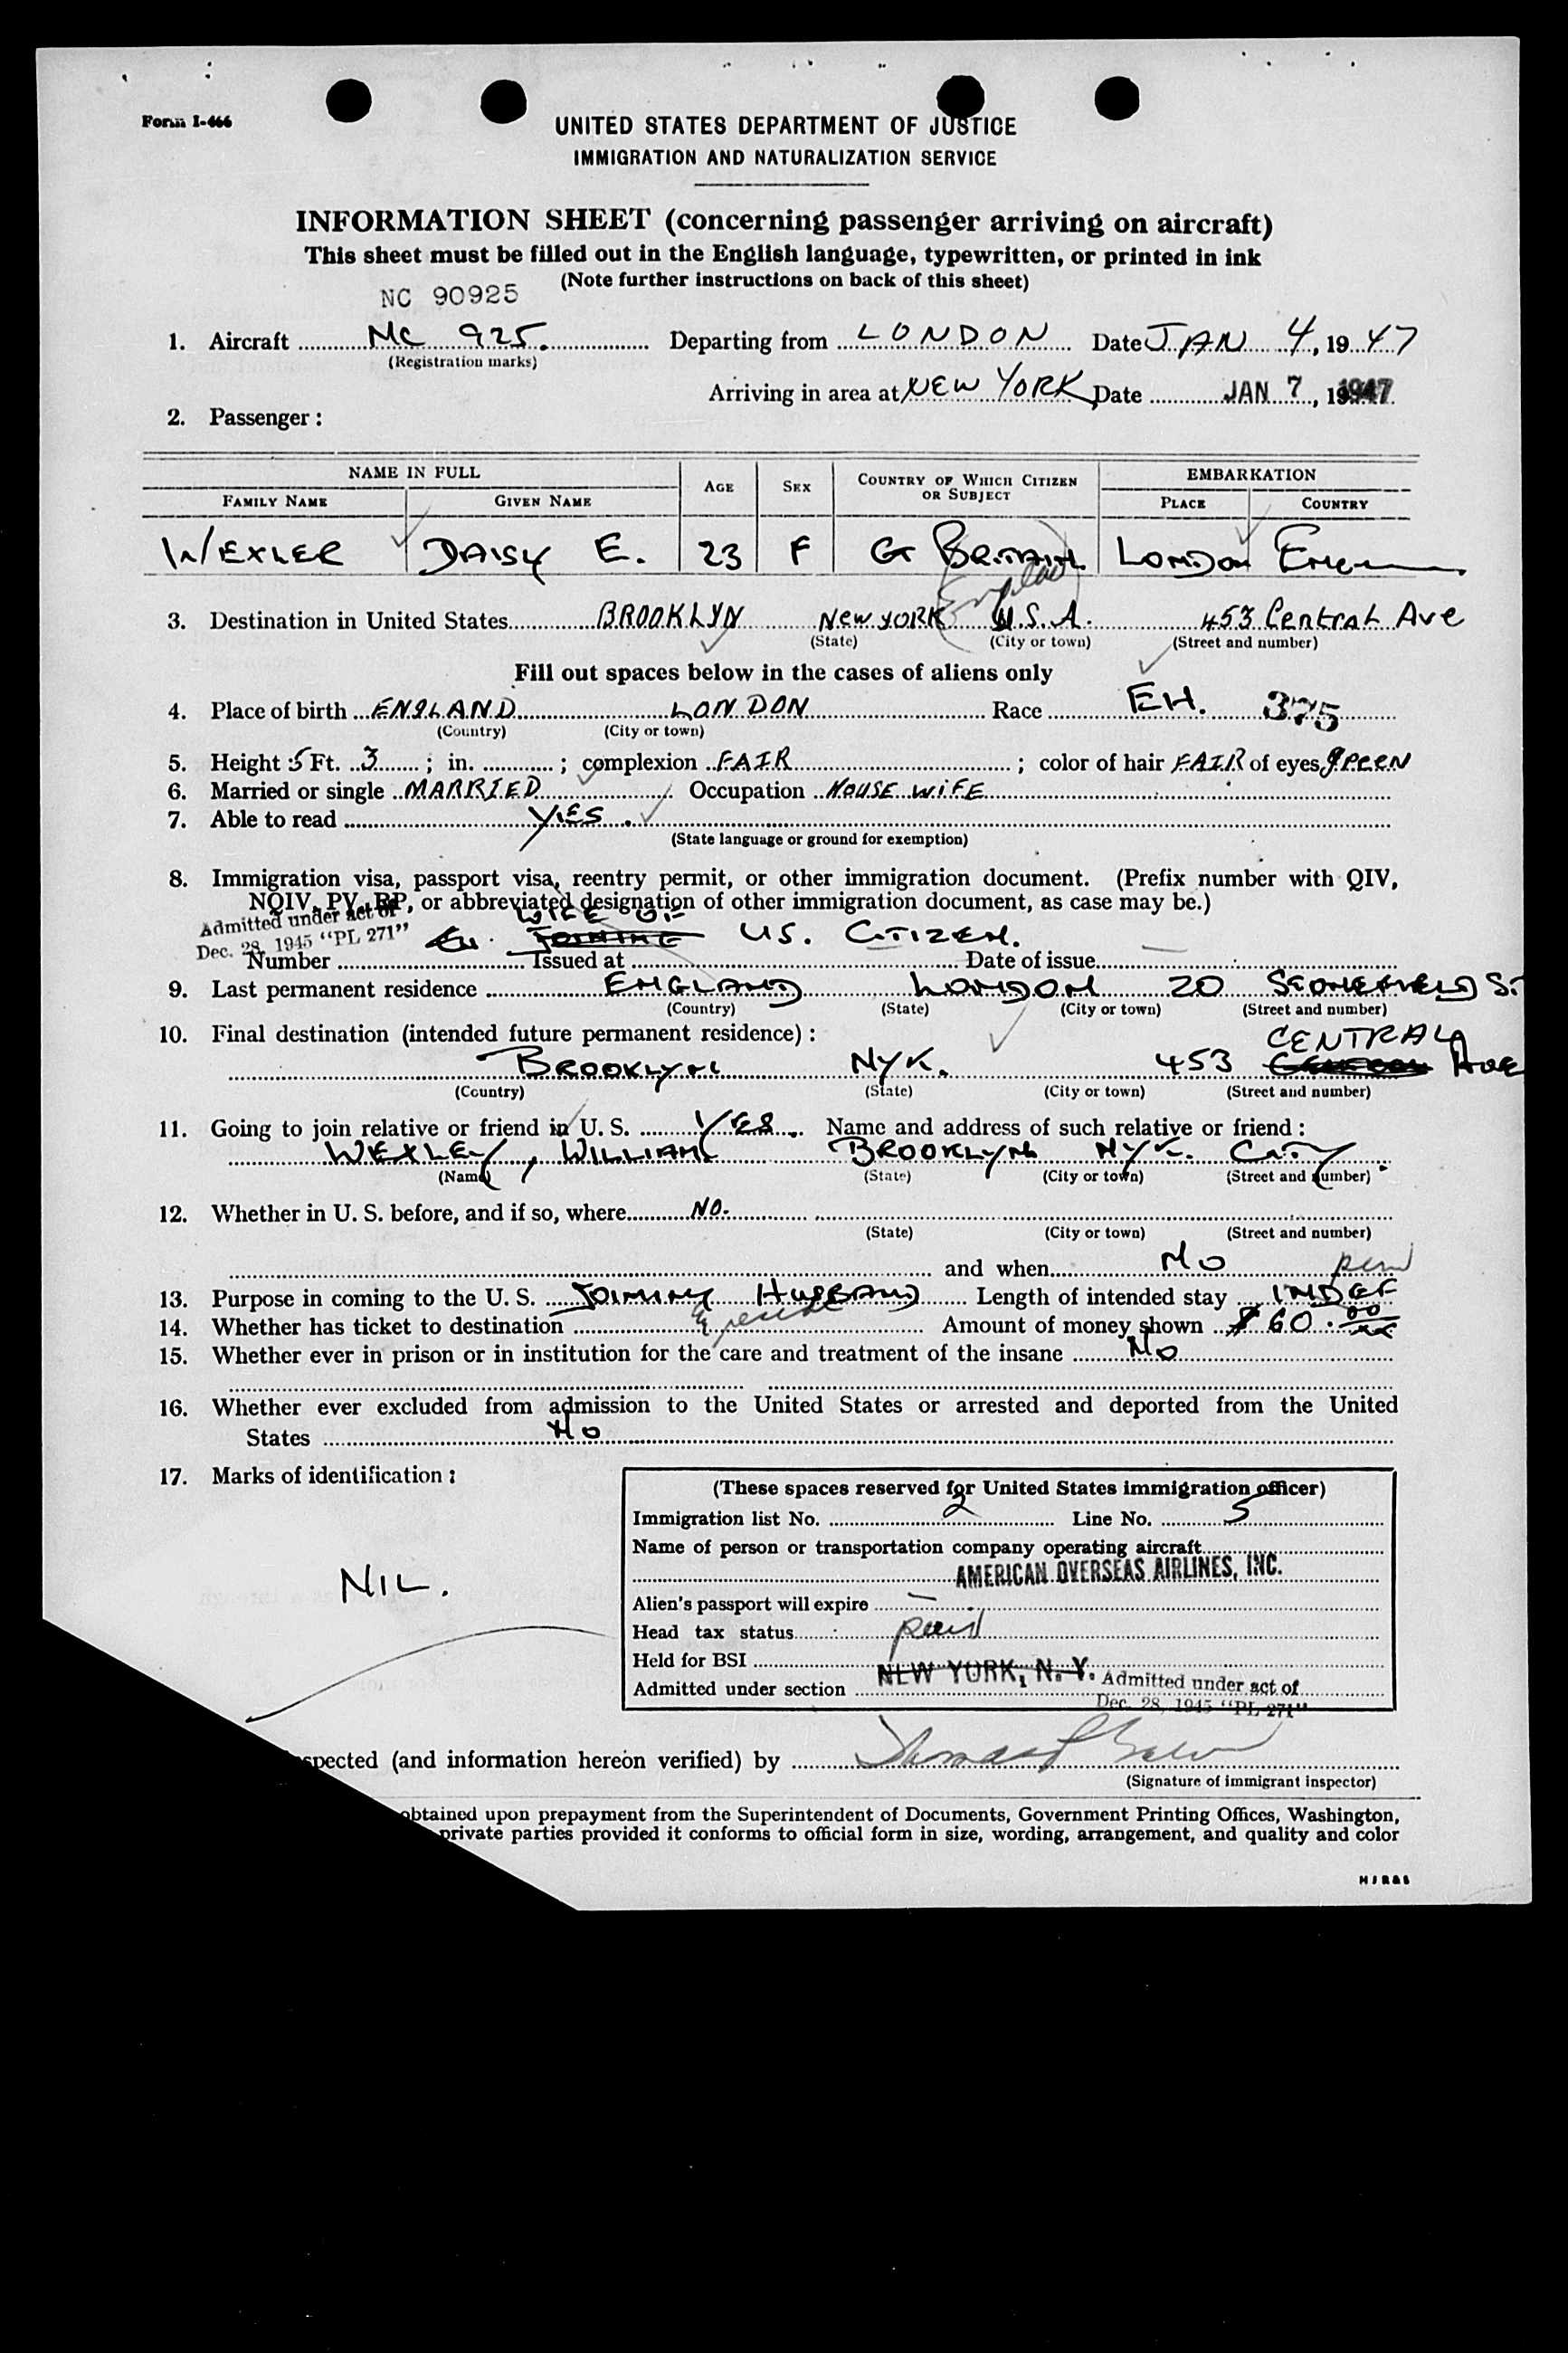 Form I-466
UNITED STATES DEPARTMENT OF JUSTICE
IMMIGRATION AND NATURALIZATION SERVICE
INFORMATION SHEET (concerning passenger arriving on aircraft)
This sheet must be filled out in the English language, typewritten, or printed in ink
(Note further instructions on back of this sheet)
NC 90925
1. Aircraft MC 925. Departing from LONDON Date JAN 4, 1947
(Registration marks)
Arriving in area at NEW YORK, Date JAN 7, 1947
2. Passenger:
NAME IN FULL AGE SEX COUNTRY OF WHICH CITIZEN OR SUBJECT EMBARKATION
FAMILY NAME GIVEN NAME PLACE COUNTRY
WEXLER DAISY E. 23 F GT BRITAIN LONDON
3. Destination in United States BROOKLYN NEW YORK U.S.A. 453 Central Ave
(State) (City or town) (Street and number)
Fill out spaces below in the cases of aliens only
4. Place of birth ENGLAND LONDON Race EH. 375
(Country) (City or town)
5. Height 5 Ft. 3 ; in. ; complexion FAIR ; color of hair FAIR of eyes green
6. Married or single MARRIED Occupation HOUSE WIFE
7. Able to read YES.
(State language or ground for exemption)
8. Immigration visa, passport visa, reentry permit, or other immigration document. (Prefix number with QIV,
NQIV, PV, RP, or abbreviated designation of other immigration document, as case may be.)
Admitted under act of
Dec. 28, 1945 "PL 271"
WIFE OF
JOINING US. CITIZEN.
Number Issued at Date of issue
9. Last permanent residence ENGLAND LONDON 20 STONEFIELD ST
(Country) (State) (City or town) (Street and number)
10. Final destination (intended future permanent residence):
CENTRAL
BROOKLYN NYK. 453 AVE
(Country) (State) (City or town) (Street and number)
11. Going to join relative or friend in U. S. YES. Name and address of such relative or friend:
WEXLEY, WILLIAM BROOKLYN NYK. CITY.
(Name) (State) (City or town) (Street and number)
12. Whether in U. S. before, and if so, where NO.
(State) (City or town) (Street and number)
and when NO
13. Purpose in coming to the U. S. JOINING HUSBAND Length of intended stay INDEF
14. Whether has ticket to destination Amount of money shown $ 60.00/xx
15. Whether ever in prison or in institution for the care and treatment of the insane NO
16. Whether ever excluded from admission to the United States or arrested and deported from the United
States NO
17. Marks of identification:
NIL.
(These spaces reserved for United States immigration officer)
Immigration list No. 2 Line No. 5
Name of person or transportation company operating aircraft
AMERICAN OVERSEAS AIRLINES, INC.
Alien's passport will expire —
Head tax status paid
Held for BSI
NEW YORK, N. Y.
Admitted under section Admitted under act of
Dec. 28, 1945 "PL 271"
spected (and information hereon verified) by
(Signature of immigrant inspector)
obtained upon prepayment from the Superintendent of Documents, Government Printing Offices, Washington,
private parties provided it conforms to official form in size, wording, arrangement, and quality and color